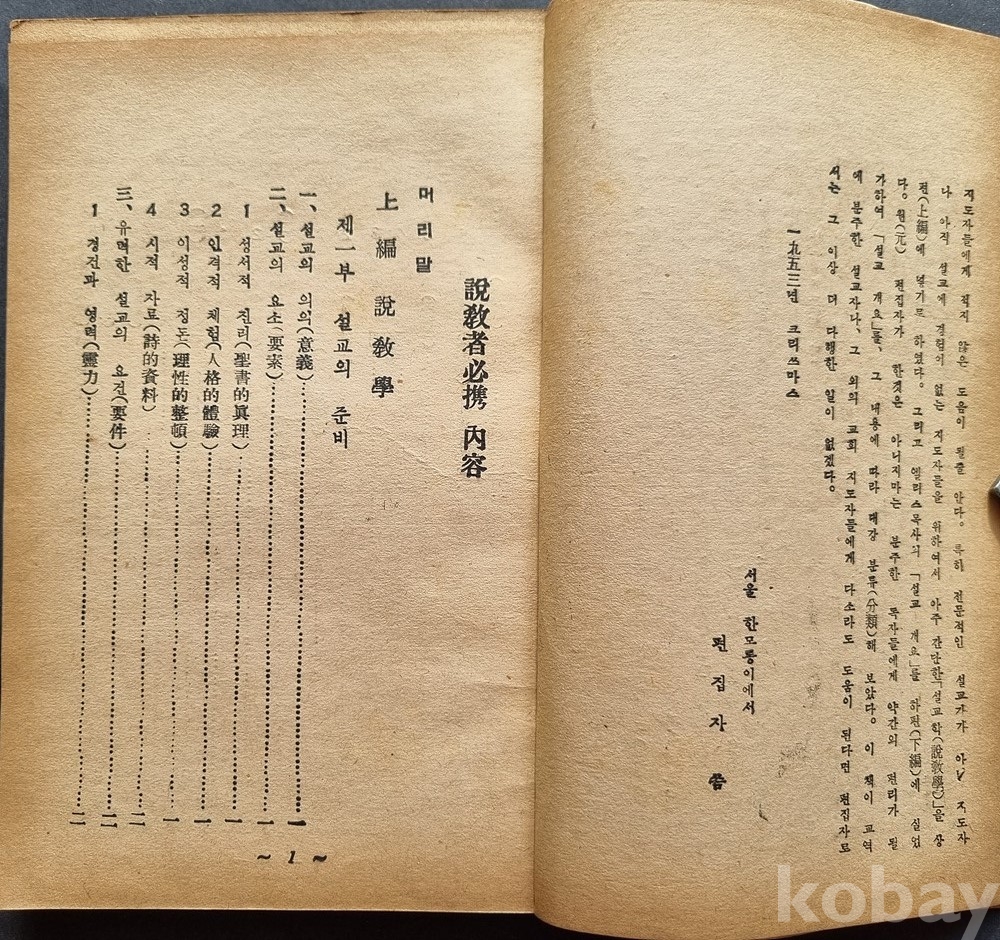 지도자들에게 적지 않은 도움이 될줄 안다. 특히 전문적인 설교가가 아 지도자
나 아직 설교에 경험이 없는 지도자들을 위하여서 아주 간단한「설교학(說敎學)」을 상
편(上編)에 넣기로 하였다. 그리고 엘리스목사의 「설교 개요」를 하편(下編)에 실었
다. 원(元) 편집자가 한것은 아니지마는 분주한 독자들에게 약간의 편리가 될
가하여 「설교 개요」를, 그 내용에 따라 대강 분류(分類)해 보았다. 이 책이 교역
에 분주한 설교자나, 그 외의 교회 지도자들에게 다소라도 도움이 된다면 편집자로
서는 그 이상 더 다행한 일이 없겠다.
一九五三년 크리쓰마스
서울 한모퉁이에서
편집자 씀
說敎者必携 內容
머리말
上編 說敎學
제一부 설교의 준비
一、설교의 의의(意義)……一
二、설교의 요소(要素)……一
1 성서적 진리(聖書的眞理)……一
2 인격적 체험(人格的體驗)……一
3 이성적 정돈(理性的整頓)……一
4 시적 자료(詩的資料)……二
三、유력한 설교의 요건(要件)……二
1 경건과 영력(靈力)……二
~ 1 ~
kobay